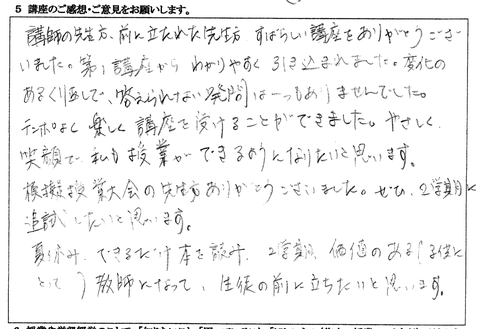 5 講座のご感想・ご意見をお願いします。
講師の先生方、前に立たれた先生方 すばらしい講座をありがとうござ
いました。第1講座から わかりやすく 引き込まれました。変化の
あるくり返しで、答えられない発問は一つもありませんでした。
テンポよく 楽しく 講座を受けることができました。やさしく、
笑顔で 私も授業ができるようになりたいと思います。
模擬授業大会の先生方ありがとうございました。ぜひ、2学期に
追試したいと思います。
夏休み、できるだけ本を読み、2学期は 価値のある(生徒に
とって)教師になって、生徒の前に立ちたいと思います。